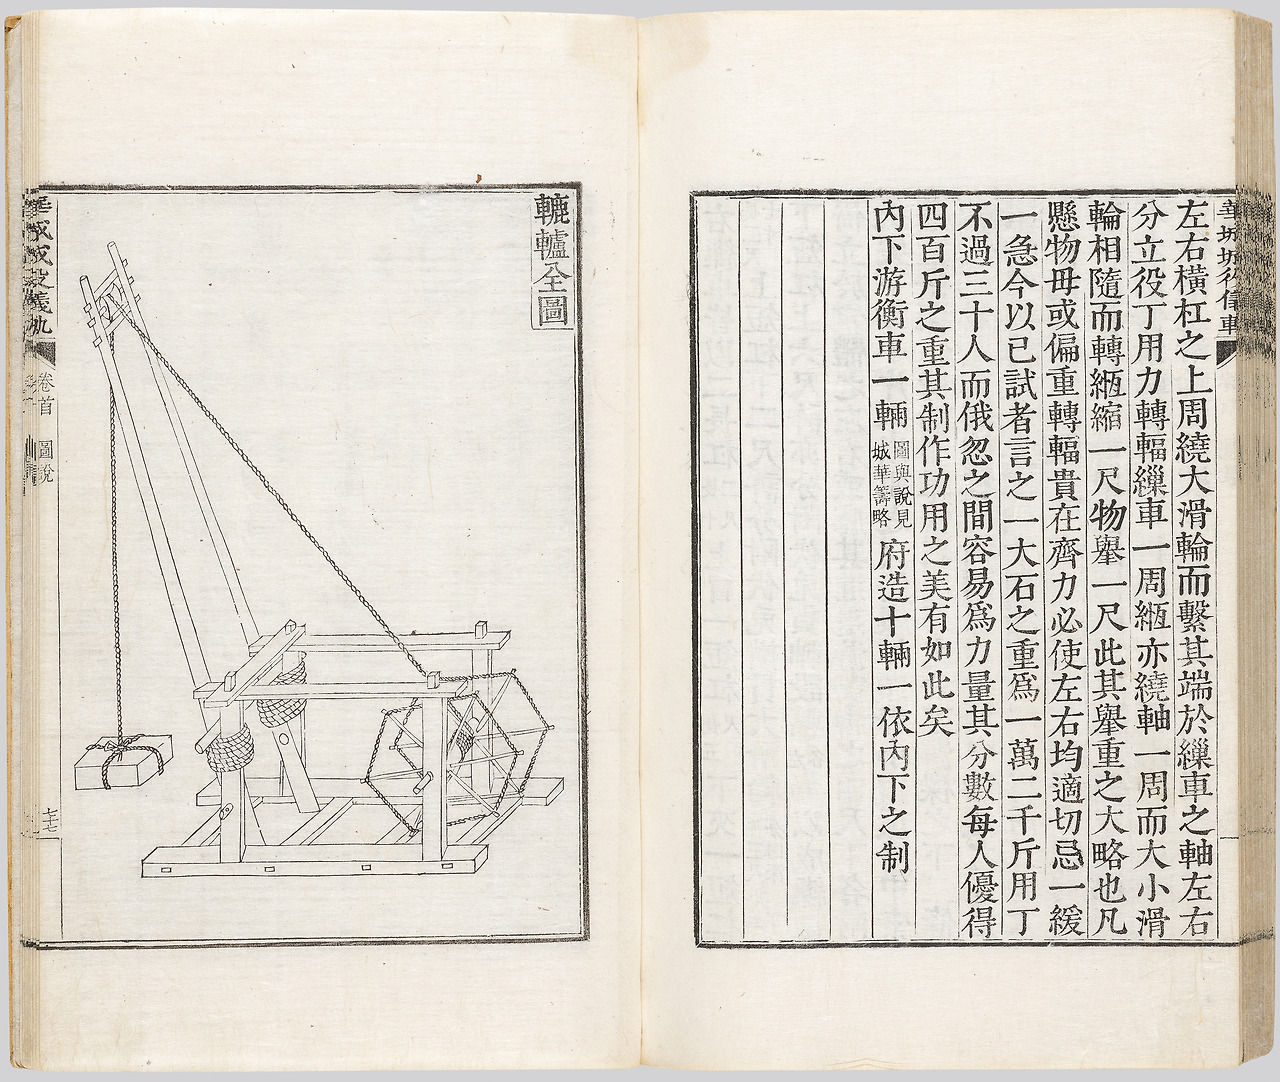 左右橫杠之上周繞大滑輪而繫其端於繅車之軸左右
分立役丁用力轉輻繅車一周緪亦繞軸一周而大小滑
輪相隨而轉緪縮一尺物擧一尺此其擧重之大略也凡
懸物毋或偏重轉輻貴在齊力必使左右均適切忌一緩
一急今以已試者言之一大石之重爲一萬二千斤用丁
不過三十人而俄忽之間容易爲力量其分數每人優得
四百斤之重其制作功用之美有如此矣
內下游衡車一輛 圖與說見
城華籌略 府造十輛一依內下之制
轆轤全圖
華城城役儀軌
卷首
圖說
七十七